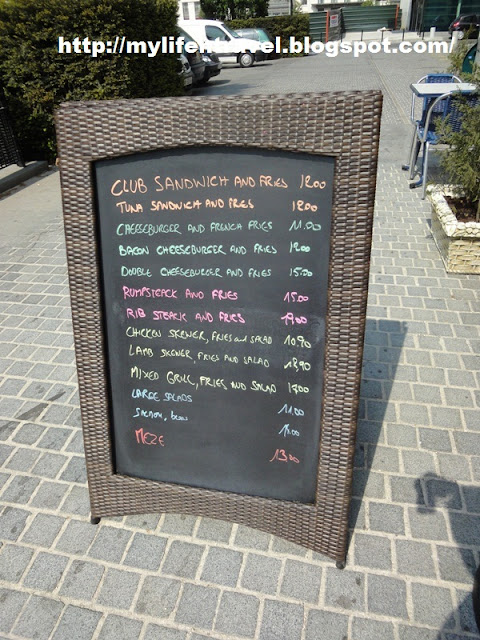 http://mylifentravel.blogspot.com/
CLUB SANDWICH AND FRIES 12.00
TUNA SANDWICH AND FRIES 12.00
CHEESEBURGER AND FRENCH FRIES 11.00
BACON CHEESEBURGER AND FRIES 12.00
DOUBLE CHEESEBURGER AND FRIES 15.00
RUMPSTEACK AND FRIES 15.00
RIB STEACK AND FRIES 19.00
CHICKEN SKEWER, FRIES AND SALAD 10.90
LAMB SKEWER, FRIES AND SALAD
MIXED GRILL, FRIES AND SALAD
LARGE SALADS 11.00
SALMON,
MEZE 13.00